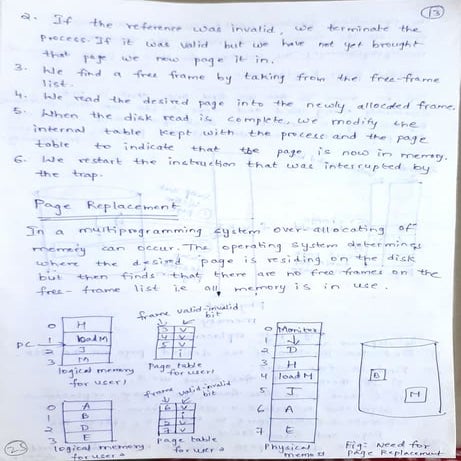 13
2. If the reference was invalid, we terminate the
process. If it was valid but we have not yet brought
that page we now page it in.
3. We find a free frame by taking from the free-frame
list.
4. We read the desired page into the newly allocated frame.
5. When the disk read is complete, we modify the
internal table kept with the process and the page
table to indicate that the page is now in memory.
6. We restart the instruction that was interrupted by
the trap.
Page Replacement
In a multiprogramming system over-allocating of
memory can occur. The operating system determines
where the desired page is residing on the disk
but then finds that there are no free frames on the
free-frame list i.e all memory is in use.
0 H
PC→ 1 load M
2 J
3 M
logical memory
for user 1
frame valid-invalid
bit
3 v
4 v
5 v
i
Page table
for user 1
0 A
1 B
2 D
3 E
logical memory
for user 2
frame valid-invalid
bit
6 v
i
2 v
7 v
Page table
for user 2
0 Monitor
1
2 D
3 H
4 load M
5 J
6 A
7 E
Physical
memory
B
M
Fig: Need for
Page Replacement
25